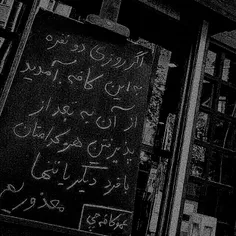 اگر روزی دو نفره
به این کافه آمدید
از آن به بعد از
پذیرفتن هر کدامتان
با فرد دیگر یا تنها
معذوریم
عمو کافه چی